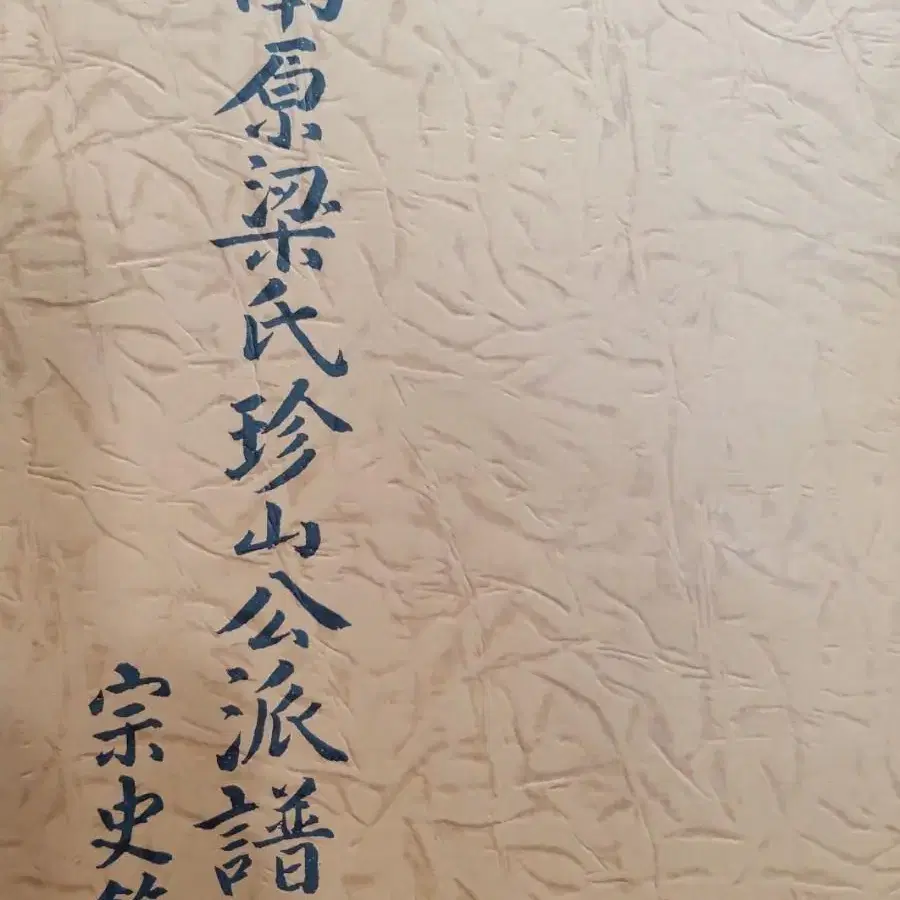 南原梁氏珍山公派譜
宗史